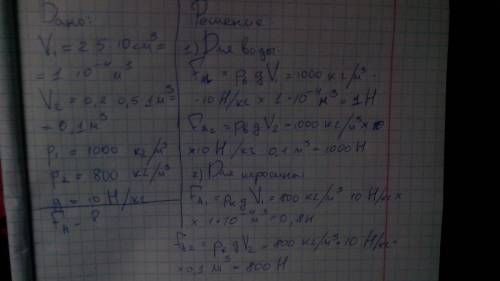 Дано:
V₁ = 2·5·10 см³ =
= 1·10⁻⁴ м³
V₂ = 0,2·0,5·1 м³ =
= 0,1 м³
ρ₁ = 1000 кг/м³
ρ₂ = 800 кг/м³
g = 10 Н/кг
Fₐ - ?
Решение:
1) Для воды:
Fₐ₁ = ρв g V₁ = 1000 кг/м³ ·
· 10 Н/кг × 1·10⁻⁴ м³ = 1 Н
Fₐ₂ = ρв g V₂ = 1000 кг/м³ ×
×10 Н/кг · 0,1 м³ = 1000 Н
2) Для керосина:
Fₐ₁ = ρк g V₁ = 800 кг/м³ · 10 Н/кг ×
× 1·10⁻⁴ м³ = 0,8 Н
Fₐ₂ = ρк g V₂ = 800 кг/м³ · 10 Н/кг ×
× 0,1 м³ = 800 Н